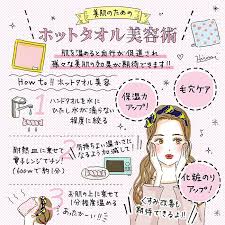 美肌のための
ホットタオル美容術
肌を温めると血行が促進され
様々な美肌の効果が期待できます!!
How to # ホットタオル美容
1 ハンドタオルを水に
ひたし水が滴らない
程度に絞る
保湿力
アップ!
毛穴ケア
2 耐熱皿に乗せて
電子レンジでチン!
(600wで約1分)
気持ちよい温かさに
なるよう加減して!
3 お肌の上に乗せて
1分程度温める
あったか〜い
化粧のり
アップ!
くすみ改善も
期待できるよ!!